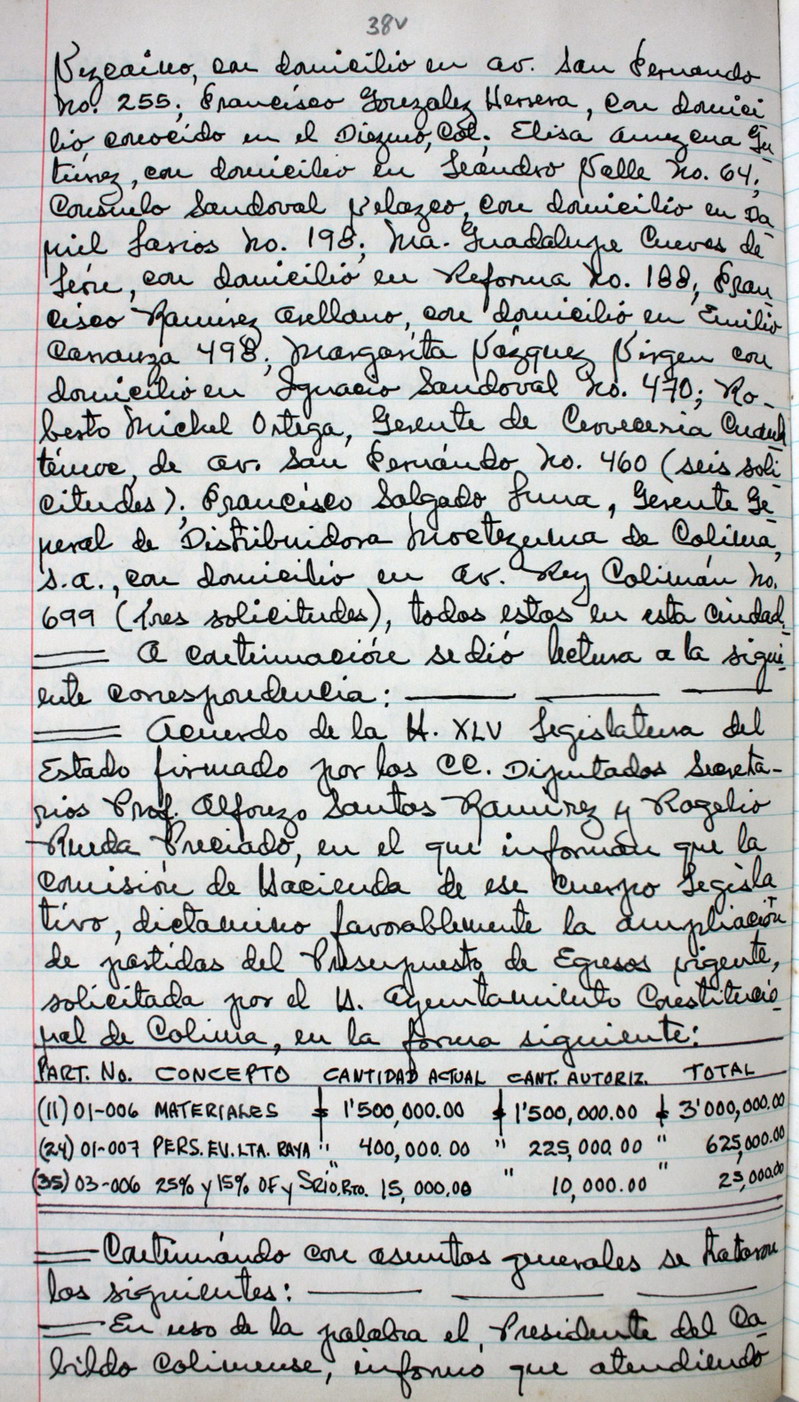 38v
Vizcaino, con domicilio en av. San Fernando
No. 255; Francisco Gonzalez Herrera, con domici
lio conocido en el Diezmo, Col; Elisa Amezcua Gu
tiérrez, con domicilio en Leandro Valle No. 64;
Consuelo Sandoval Velazco, con domicilio en Da
niel Larios No. 198; Ma. Guadalupe Cuevas de
León, con domicilio en Reforma No. 188; Fran
cisco Ramírez Arellano, con domicilio en Emilio
Carranza 498; Margarita Vázquez Virgen con
domicilio en Ignacio Sandoval No. 470; Ro-
berto Michel Ortega, Gerente de Cervecería Cuauh
témoc, de av. San Fernándo No. 460 (seis soli
citudes). Francísco Salgado Luna, Gerente Ge
neral de Distribuidora Moctezuma de Colima,
s.a., con domicilio en av. Rey Colimán No.
699 (tres solicitudes), todos estos en esta Ciudad.
A continuación se dió lectura a la sigui-
ente correspondencia:
Acuerdo de la H. XLV Legislatura del
Estado firmado por los CC. Diputados Secreta-
rios Prof. Alfonzo Santos Ramírez y Rogelio
Rueda Preciado, en el que informan que la
Comisión de Hacienda de ese Cuerpo Legisla
tivo, dictamino favorablemente la ampliación
de partidas del Presupuesto de Egresos vigente,
solicitada por el H. Ayuntamiento Constitucio
nal de Colima, en la forma siguiente:
PART. No. CONCEPTO CANTIDAD ACTUAL CANT. AUTORIZ. TOTAL
(11) 01-006 MATERIALES $ 1'500,000.00 $ 1'500,000.00 $ 3'000,000.00
(24) 01-007 PERS. EV. LTA. RAYA " 400,000.00 " 225,000.00 " 625,000.00
(35) 03-006 25% y 15% OF y SRIO. RTO. " 15,000.00 " 10,000.00 " 25,000.00
Continuándo con asuntos generales se trataron
los siguientes:
En uso de la palabra el Presidente del Ca
bildo Colimense, informó que atendiendo